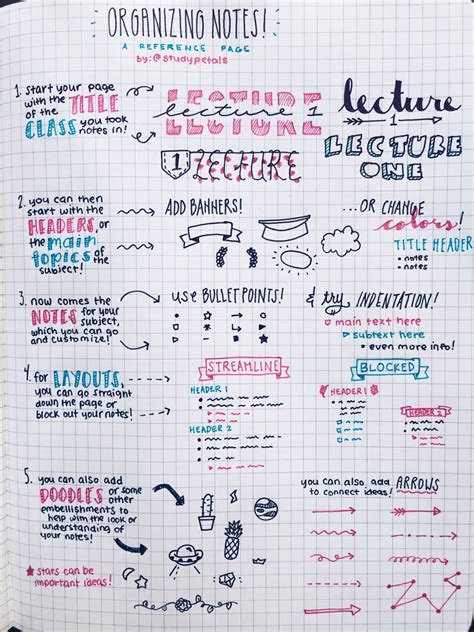 ORGANIZING NOTES!
A REFERENCE PAGE
by: @studypetals
1. start your page
with the TITLE
of the
CLASS you took
notes in!
LECTURE
lecture 1
LECTURE
1 LECTURE
lecture
1
LECTURE
ONE
2. you can then
start with the
HEADERS, or
the main
topics of the
subject!
ADD BANNERS!
...OR CHANGE
colors!
TITLE HEADER
• notes
• notes
3. now comes the
NOTES for your
subject,
which you can go
and customize!
USE BULLET POINTS!
& try INDENTATION!
main text here
subtext here
• even more info!
4. for LAYOUTS,
you can go straight
down the page or
block out your notes!
STREAMLINE
HEADER 1
HEADER 2
BLOCKED
HEADER 1
HEADER 2
5. you can also add
DOODLES or some
other
embellishments to
help with the look or
understanding of
your notes!
★ stars can be
important ideas!
you can also add ARROWS
to connect ideas!